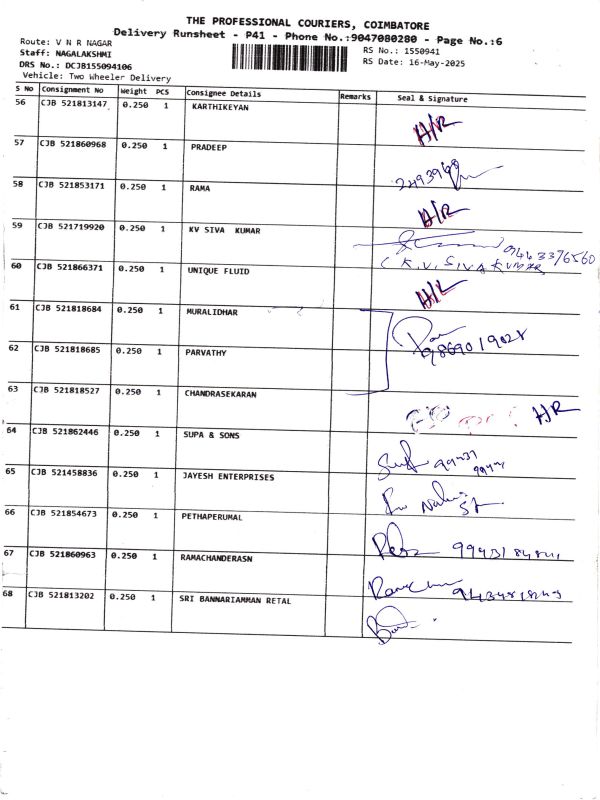 THE PROFESSIONAL COURIERS, COIMBATORE
Delivery Runsheet - P41 - Phone No.:9047080280 - Page No.:6
Route: V N R NAGAR
RS No.: 1550941
Staff: NAGALAKSHMI
RS Date: 16-May-2025
DRS No.: DCJB155094106
Vehicle: Two Wheeler Delivery
S No Consignment No Weight PCS Consignee Details Remarks Seal & Signature
56 CJB 521813147 0.250 1 KARTHIKEYAN H/R
57 CJB 521860968 0.250 1 PRADEEP
58 CJB 521853171 0.250 1 RAMA H/R
59 CJB 521719920 0.250 1 KV SIVA KUMAR 9443376560
( K.V. SIVA KUMAR
60 CJB 521866371 0.250 1 UNIQUE FLUID H/R
61 CJB 521818684 0.250 1 MURALIDHAR
9869019028
62 CJB 521818685 0.250 1 PARVATHY
63 CJB 521818527 0.250 1 CHANDRASEKARAN H/R
64 CJB 521862446 0.250 1 SUPA & SONS
65 CJB 521458836 0.250 1 JAYESH ENTERPRISES
66 CJB 521854673 0.250 1 PETHAPERUMAL
67 CJB 521860963 0.250 1 RAMACHANDERASN
68 CJB 521813202 0.250 1 SRI BANNARIAMMAN RETAL